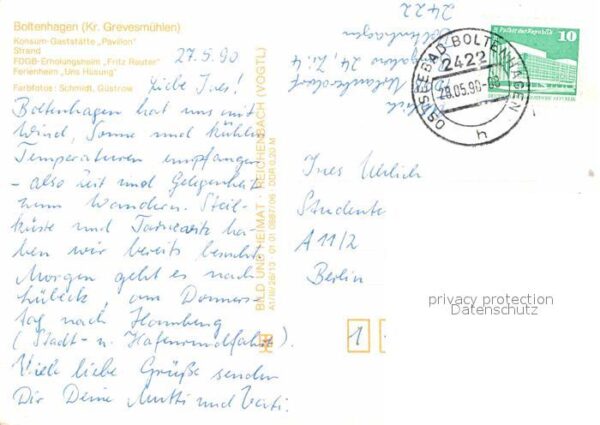 Boltenhagen (Kr. Grevesmühlen)
Konsum-Gaststätte „Pavillon"
Strand
FDGB-Erholungsheim „Fritz Reuter"
Ferienheim „Uns Hüsung"
Farbfotos: Schmidt, Güstrow
27.5.90
Liebe Ines!
Boltenhagen hat uns mit
Wind, Sonne und kühlen
Temperaturen empfangen
- also Zeit und Gelegenheit
zum Wandern. Steil-
küste und Tarnewitz ha-
ben wir bereits besucht.
Morgen geht es nach
Lübeck, am Donners-
tag nach Hamburg
(Stadt- u. Hafenrundfahrt)
Viele liebe Grüße senden
Dir Deine Mutti und Vati.
BILD UND HEIMAT · REICHENBACH (VOGTL)
A1/ 26/13 01 01 0897/06 DDR 0,20 M
2422
Boltenhagen
24, Zi. 4
OSTSEEBAD BOLTENHAGEN
2422
28.05.90-08
h
Palast der Republik
10
Ines
Studente
A 11/2
Berlin
1
privacy protection
Datenschutz